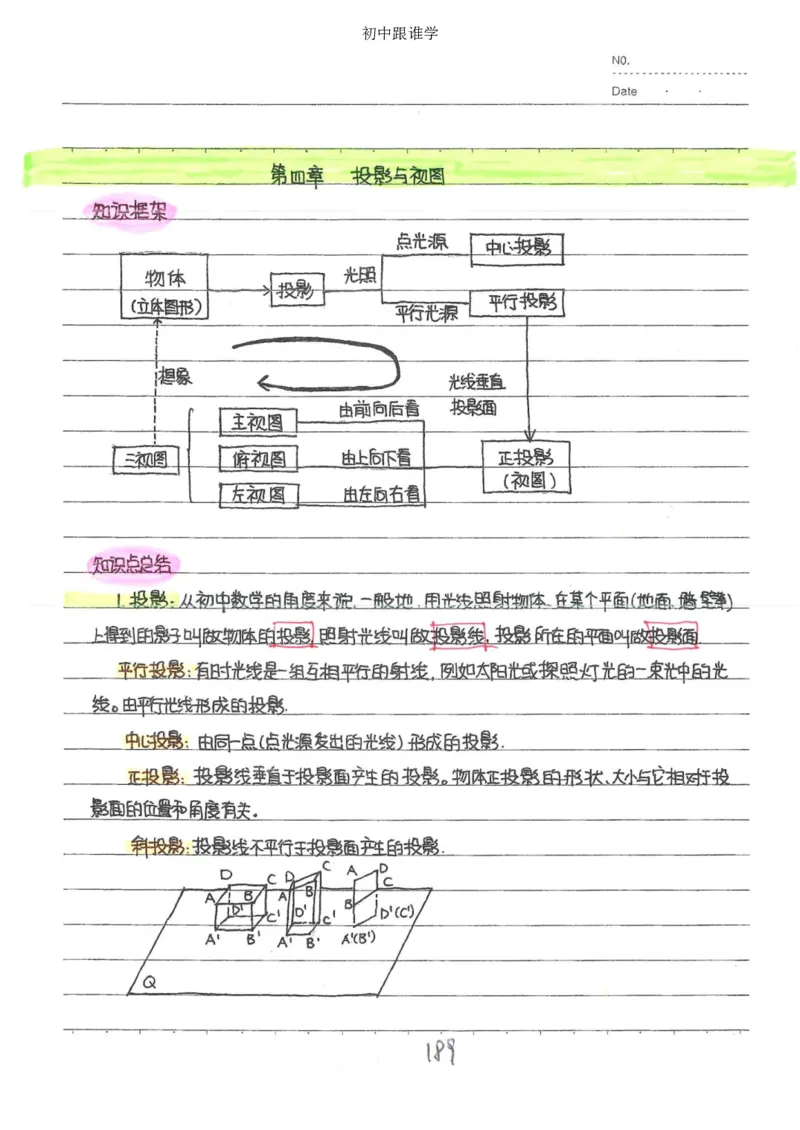 初中跟谁学
N0.
Date
第四章 投影与视图
知识框架
点光源 中心投影
物体 光照
投影
(立体图形) 平行光源 平行投影
想象 光线垂直
主视图 由前向后看 投影面
三视图 俯视图 由上向下看 正投影
(视图)
左视图 由左向右看
知识点总结
1.投影:从初中数学的角度来说,一般地,用光线照射物体,在某个平面(地面、墙壁等)
上得到的影子叫做物体的投影,照射光线叫做投影线,投影所在的平面叫做投影面.
平行投影:有时光线是一组互相平行的射线,例如太阳光或探照灯光的一束光中的光
线。由平行光线形成的投影.
中心投影:由同一点(点光源发出的光线)形成的投影.
正投影:投影线垂直于投影面产生的投影。物体正投影的形状、大小与它相对于投
影面的位置和角度有关。
斜投影:投影线不平行于投影面产生的投影.
D C D C A D
A B A B B C
D' C' D' C' D'(C')
A' B' A' B' A'(B')
Q
189